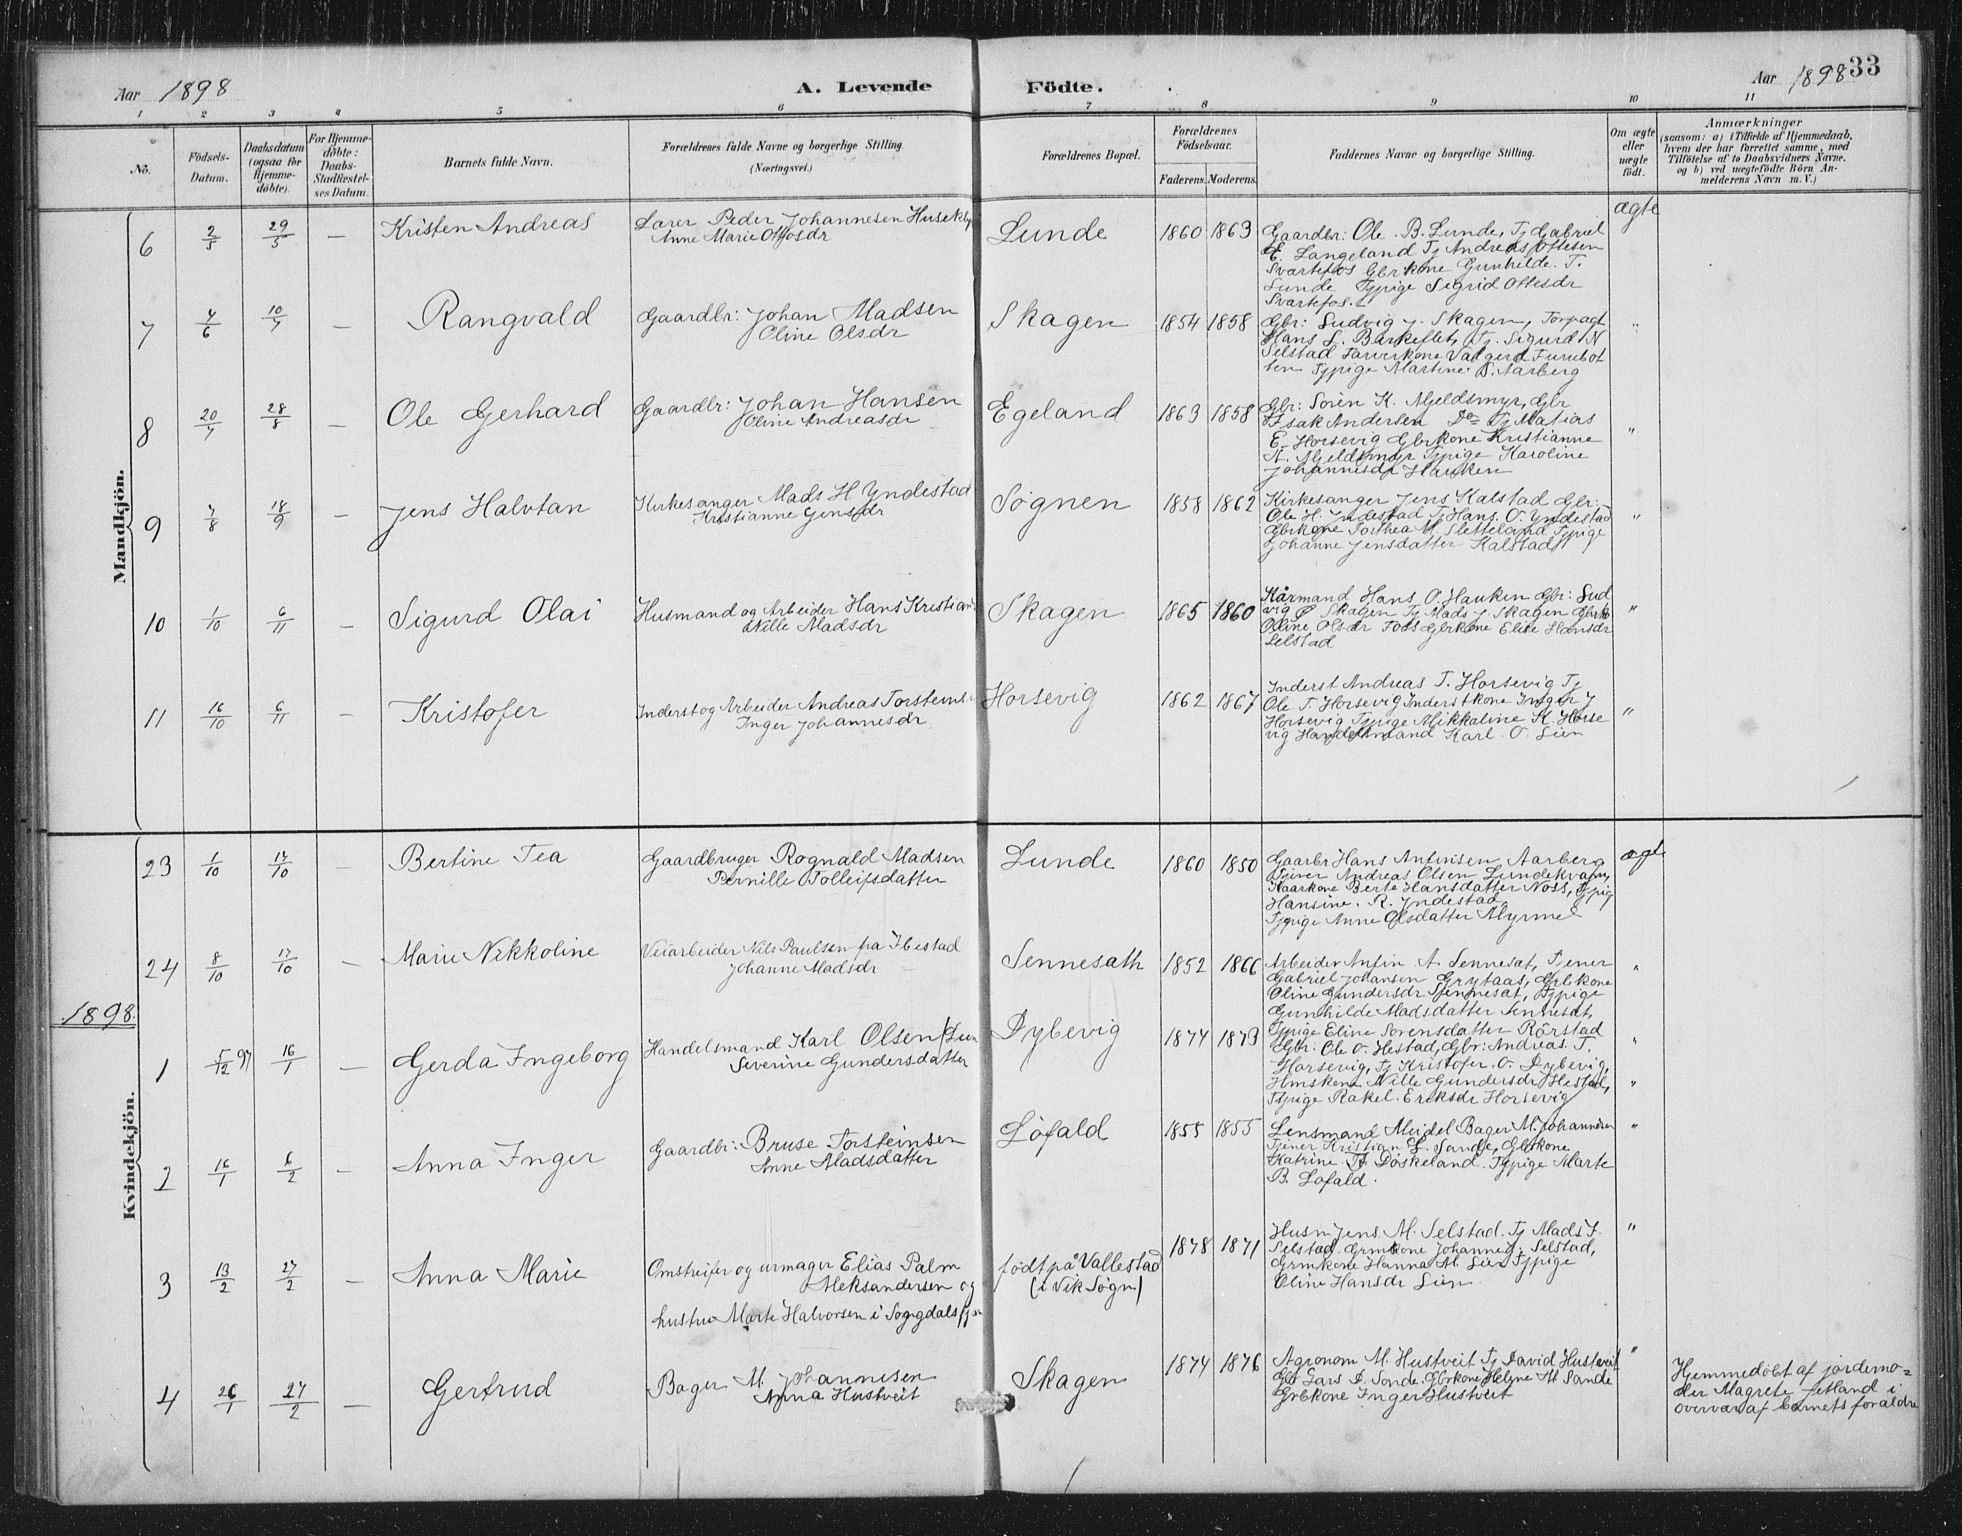 Aar 1898
A. Levende
Födte.
Aar 1898
33
1 2 3 4 5 6 7 8 9 10 11
No.
Födsels-Datum.
Daabsdatum (ogsaa for Hjemme-döbte).
For Hjemme-döbte: Daabs-Stadfæstel-ses Datum.
Barnets fulde Navn.
Forældrenes fulde Navne og borgerlige Stilling.
(Næringsvei.)
Forældrenes Bopæl.
Forældrenes Födselsaar.
Faderens. Moderens.
Faddernes Navne og borgerlige Stilling.
Om ægte eller uægte födt.
Anmærkninger
(saasom: a) i Tilfælde af Hjemmedaab,
hvem der har forrettet samme, med
Tilföielse af to Daabsvidners Navne,
og b) ved uægtefödte Börn An-
melderens Navn m. V.)
Mandkjön.
6 2/5 29/5 — Kristen Andreas
Lærer Peder Johannesen Husekby
Anne Marie Ottosdr
Lunde 1860 1863
Gaardbr: Ole B. Lunde, Tj Gabriel
E. Langeland Tj Andreas Ottesen
Svartefos Gbrkone Gunhilde. T.
Lunde Tjpige Sigrid Ottesdr
Svartefos.
ægte
7 4/6 10/7 — Rangvald
Gaardbr: Johan Madsen
Oline Olsdr
Skagen 1854 1858
Gbr: Ludvig J. Skagen, Forpagt
Hans L. Barkeflet, Tj. Sigurd N
Selstad Farverkone Valgerd Furubot
ten Tjpige Martine Aarberg
"
8 20/7 28/8 — Ole Gerhard
Gaardbr: Johan Hansen
Oline Andreasdr
Egeland 1863 1858
Gbr: Soren K. Mjeldsmyr, Gbr
Isak Andersen Do Tj Matias
E. Horsevig Gbrkone Kristianne
N. Mjeldsmyr Tjpige Karoline
Johannesdr Hauken
"
9 7/8 18/9 — Jens Halvtan
Kirkesanger Mads H Yndestad
Kristianne Jensdr
Søgnen 1858 1862
Kirkesanger Jens Kalstad Gbr:
Ole H. Yndestad Tj Hans. O. Yndestad
Gbrkone Torthea M. Sletteland Tjpige
Johanne Jensdatter Kalstad
"
10 1/10 6/11 — Sigurd Olai
Husmand og Arbeider Hans Kristian
Nille Madsdr
Skagen 1865 1860
Kårmand Hans O. Hauken Gbr: Lud
vig Skagen Tj Mads J. Skagen Gbrk
Oline Olsdr Foss Gbrkone Elise Hansdr
Selstad
"
11 16/10 6/11 — Kristofer
Inderst og Arbeider Andreas Torsteins
Inger Johannesdr
Horsevig 1862 1867
Inderst Andreas T. Horsevig Tj
Ole T. Horsevig Inderstkone Inger J
Horsevig Tjpige Mikkaline K. Horse
vig Handelsmand Karl. O. Lien
"
Kvindekjön.
23 1/10 17/10 — Bertine Tea
Gaardbruger Rognald Madsen
Pernille Tolleifsdatter
Lunde 1860 1850
Gaarbr Hans Anfinsen Aarberg
Tjener Andreas Olsen Lundekvam,
Kaarkone Berte Hansdatter Noss, Tjpig
Hansine. R. Yndestad
Tjpige Anne Olsdatter Myrmel
ægte
24 8/10 17/10 — Marie Nikkoline
Veiarbeider Nils Paulsen fra Ibestad
Johanne Madsdr
Sennesath 1852 1866
Arbeider Anfin A. Sennesat, Tjener
Gabriel Johansen Grytaas, Gbrkone
Oline Gundersdr Sennesat, Tjpige
Gunhilde Madsdatter Sennesat,
Tjpige Eline Sorensdatter Rörstad
"
1898.
1 5/12 97 16/1 — Gerda Ingeborg
Handelsmand Karl Olsen Lien
Severine Gundersdatter
Dybevig 1874 1873
Gbr: Ole O. Hestad, Gbr: Andreas T.
Horsevig, Tj Kristofer. O. Dybevig,
Hmskone Nille Gundersdr Hestad,
Tjpige Rakel. Eriksdr Horsevig
"
"
2 16/1 6/2 — Anna Inger
Gaardbr: Bruse Torsteinsen
Anne Madsdatter
Lofald 1855 1855
Lensmand Meidel Bager M. Johannesen
Tjener Kristian L. Sande, Gbrkone
Katrine Döskeland. Tjpige Marte
B. Lofald.
"
3 13/2 27/2 — Anna Marie
Omstreifer og urmager Elias Palm
Aleksandersen og
hustru Marte Halvorsen i Sogngdalsfj
født på Vallestad
(i Vik Sogn) 1878 1871
Husm Jens M. Selstad. Tj Mads F.
Selstad. Grmkone Johanne J. Selstad,
Grmkone Hanna M. Lien Tjpige
Oline Hansdr Lien
"
4 26/1 27/2 Gertrud
Bager M. Johannesen
Anna Hustveit
Skagen 1874 1876
Agronom M. Hustveit Tj David Hustveit
Gbr Lars D. Sande. Gbrkone Helene M Sande
Grbkone Inger Hustveit
"
Hjemmedøbt af jordemo-
der Magrete fetland i
overvær af barnets forældre